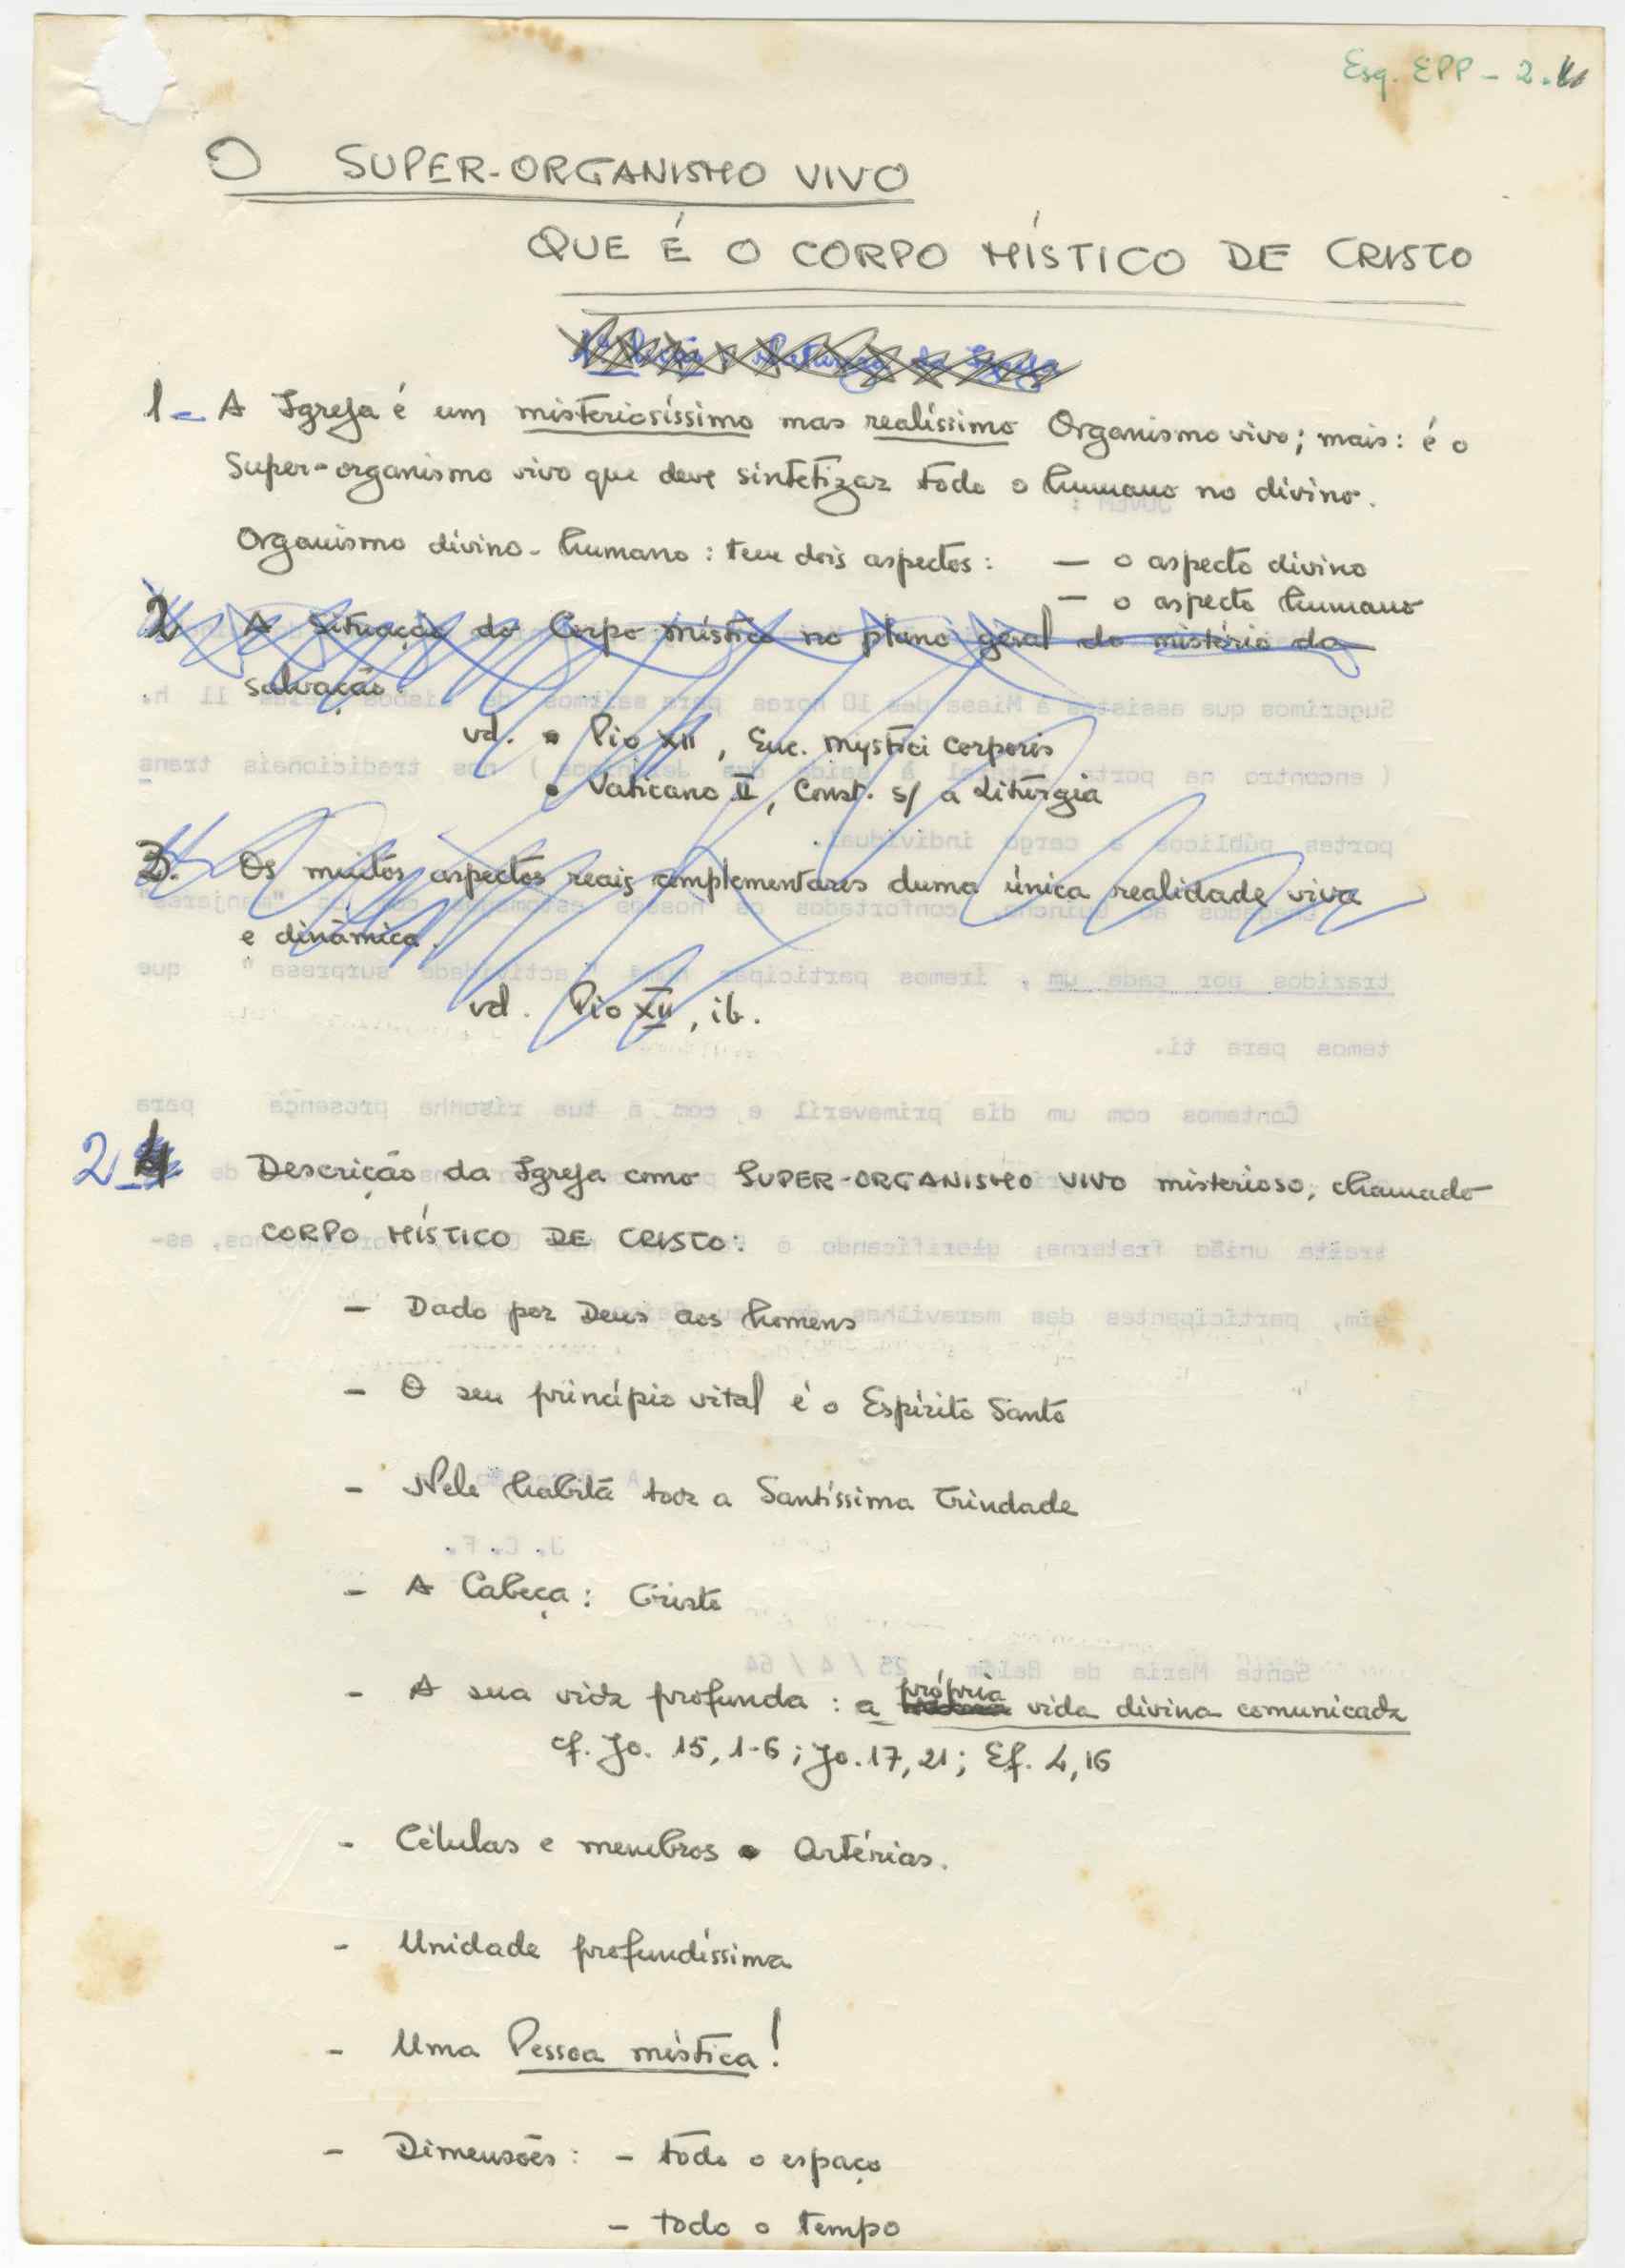 Esq. EPP - 2.
O SUPER-ORGANISMO VIVO
QUE É O CORPO MÍSTICO DE CRISTO
1ª Lição: Natureza da Igreja
1 - A Igreja é um misteriosíssimo mas realíssimo Organismo vivo; mais: é o
Super-organismo vivo que deve sintetizar todo o humano no divino.
Organismo divino-humano: tem dois aspectos: — o aspecto divino
— o aspecto humano
2 A Situação do Corpo místico no plano geral do mistério da
salvação.
vd. • Pio XII, Enc. Mystici Corporis
• Vaticano II, Const. s/ a Liturgia
3. Os muitos aspectos reais complementares duma única realidade viva
e dinâmica.
vd. Pio XII, ib.
2 - 4 Descrição da Igreja como SUPER-ORGANISMO VIVO misterioso, chamado
CORPO MÍSTICO DE CRISTO:
- Dado por Deus aos homens
- O seu princípio vital é o Espírito Santo
- Nele habita toda a Santíssima Trindade
- A Cabeça: Cristo
- A sua vida profunda: a própria vida divina comunicada
cf. Jo. 15, 1-6; Jo. 17, 21; Ef. 4, 16
- Células e membros • Artérias.
- Unidade profundíssima
- Uma Pessoa mística!
- Dimensões: - todo o espaço
- todo o tempo